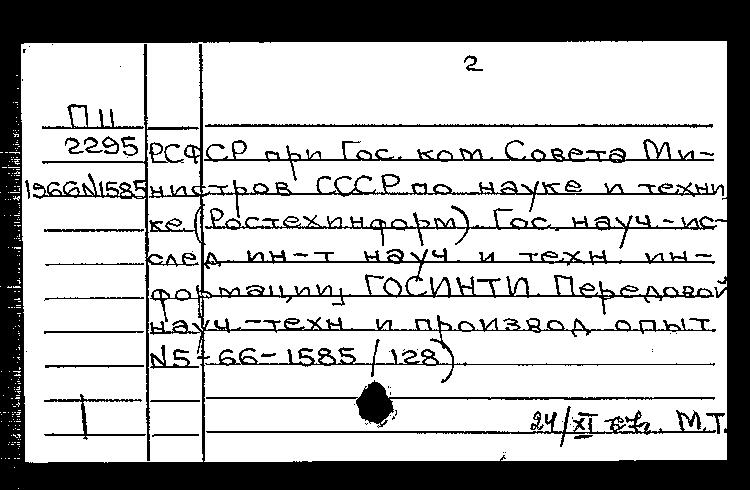 2
П 11
2295 РСФСР при Гос. ком. Совета Ми-
1966N1585 нистров СССР по науке и техни
ке (Ростехинформ). Гос. науч.-ис-
след. ин-т науч. и техн. ин-
формации, ГОСИНТИ. Передовой
науч.-техн. и производ. опыт.
N5-66-1585/128).
24/XI М.Т.